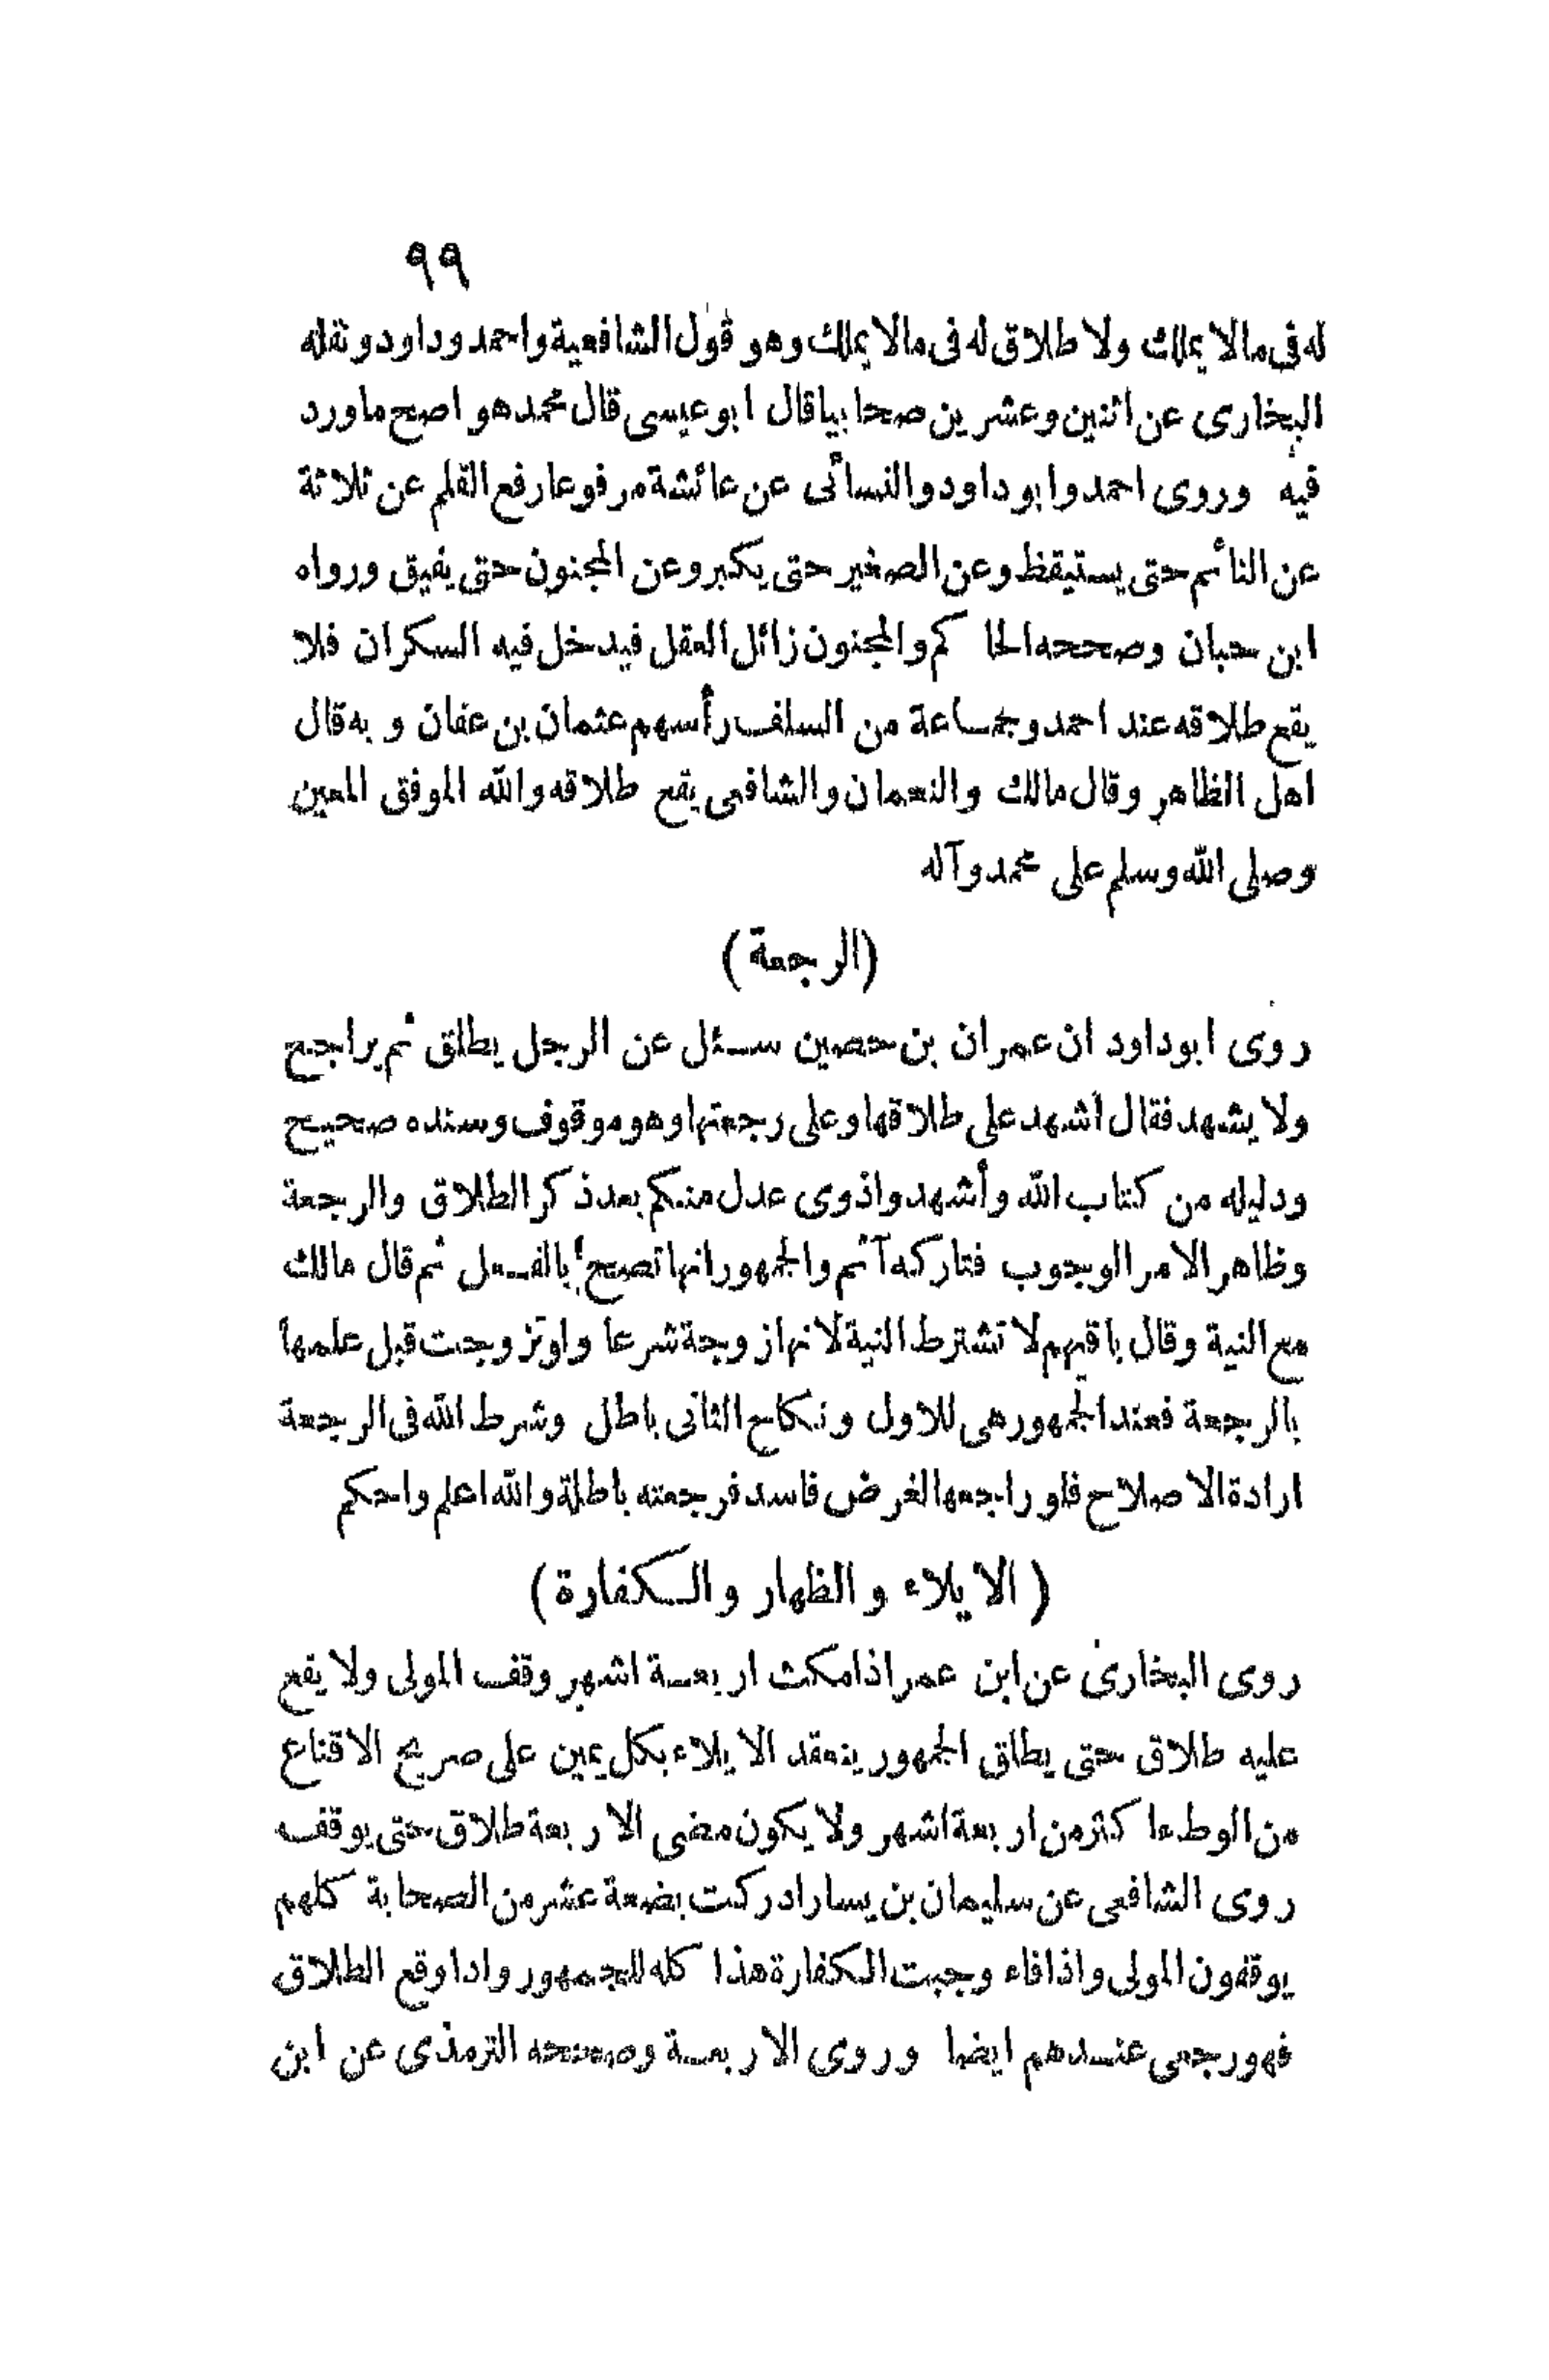 ٩٩
له فى مالا يملك ولا طلاق له فى مالا يملك وهو قول الشافعية واحمد وداود ونقله
البخارى عن اثنين وعشرين صحابيا قال ابو عيسى قال محمد هو اصح ما ورد
فيه وروى احمد وابو داود والنسائى عن عائشة مرفوعا رفع القلم عن ثلاثة
عن النائم حتى يستيقظ وعن الصغير حتى يكبر وعن المجنون حتى يفيق ورواه
ابن حبان وصححه الحاكم والمجنون زائل العقل فيدخل فيه السكران فلا
يقع طلاقه عند احمد وجماعة من السلف رأسهم عثمان بن عفان وبه قال
اهل الظاهر وقال مالك والنعمان والشافعى يقع طلاقه والله الموفق المعين
وصلى الله وسلم على محمد وآله
(الرجعة)
روى ابو داود ان عمران بن حصين سئل عن الرجل يطلق ثم يراجع
ولا يشهد فقال أشهد على طلاقها وعلى رجعتها وهو موقوف وسنده صحيح
ودليله من كتاب الله وأشهدوا ذوى عدل منكم بعد ذكر الطلاق والرجعة
وظاهر الامر الوجوب فتاركه آثم والجمهور انها تصح بالفعل ثم قال مالك
مع النية وقال باقيهم لا تشترط النية لانها زوجة شرعا ولو تزوجت قبل علمها
بالرجعة فعند الجمهور هى للاول ونكاح الثانى باطل وشرط الله فى الرجعة
ارادة الاصلاح فلو راجعها لغرض فاسد فرجعته باطلة والله اعلم واحكم
(الايلاء والظهار والكفارة)
روى البخارى عن ابن عمر اذا مكث اربعة اشهر وقف المولى ولا يقع
عليه طلاق حتى يطلق الجمهور ينعقد الايلاء بكل يمين على صريح الاقناع
من الوطء اكثر من اربعة اشهر ولا يكون مضى الاربعة طلاق حتى يوقف
روى الشافعى عن سليمان بن يسار ادركت بضعة عشر من الصحابة كلهم
يوقفون المولى واذا فاء وجبت الكفارة هذا كله للجمهور واذا وقع الطلاق
فهو رجعى عندهم ايضا وروى الاربعة وصححه الترمذى عن ابن